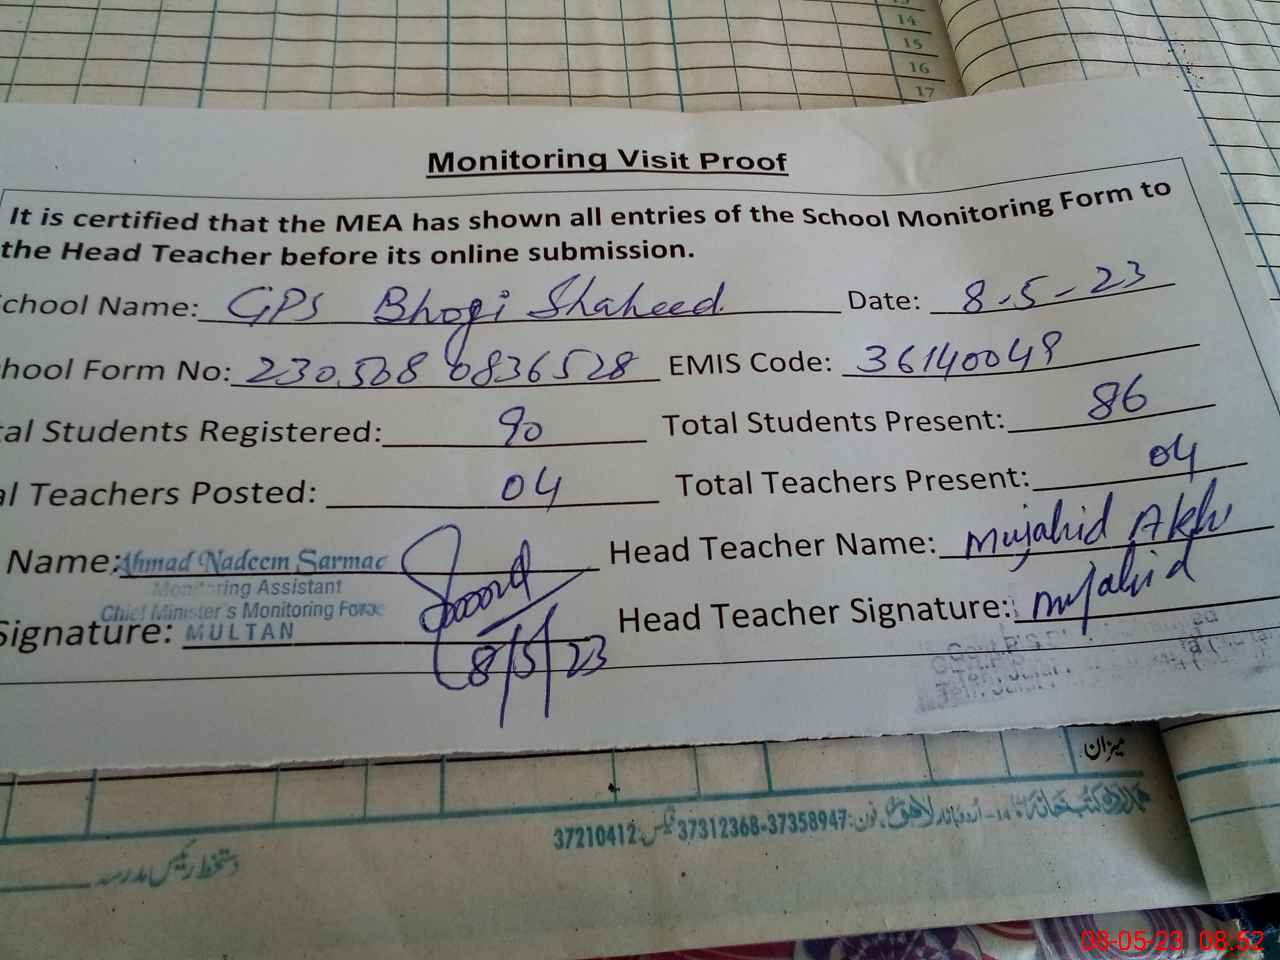 14
15
16
17
Monitoring Visit Proof
It is certified that the MEA has shown all entries of the School Monitoring Form to
the Head Teacher before its online submission.
chool Name: GPS Bhogi Shaheed Date: 8-5-23
hool Form No: 230508 0836528 EMIS Code: 36140049
tal Students Registered: 90 Total Students Present: 86
al Teachers Posted: 04 Total Teachers Present: 04
Name: Ahmad Nadeem Sarmac Head Teacher Name: Mujahid Akh
Monitoring Assistant
Chief Minister's Monitoring Force
Signature: MULTAN Head Teacher Signature: Mujahid
8/5/23
میزان
لاہور فون: 37358947-37312368 فیکس: 37210412
دستخط رئیس مدرسہ
08-05-23 08:52